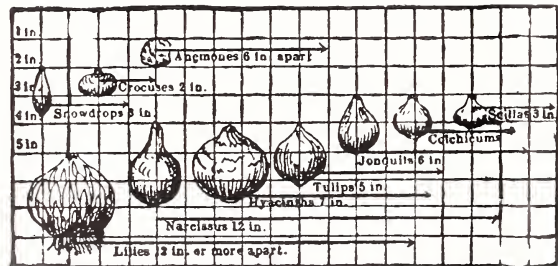 1 in.
2 in.
Anemones 6 in. apart
3 in.
Crocuses 2 in.
Snowdrops 3 in.
Scillas 3 in.
4 in.
Colchicums
5 in.
Jonquils 6 in
Tulips 5 in.
Hyacinths 7 in.
Narcissus 12 in.
Lilies 12 in. or more apart.